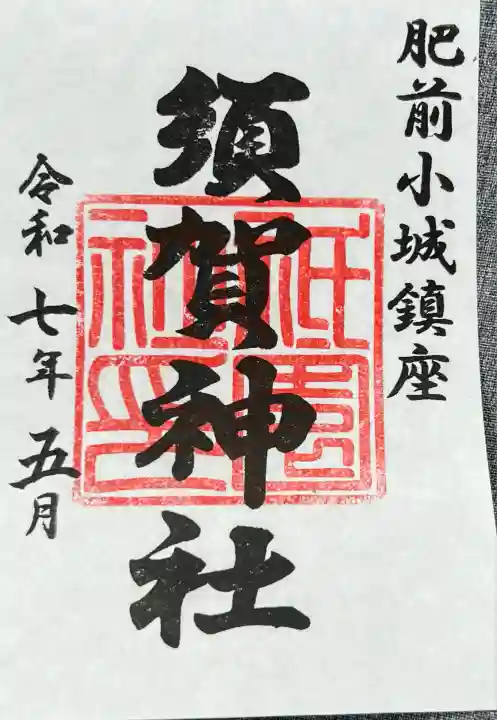 肥前小城鎮座
須賀神社
令和七年五月
祇園社印